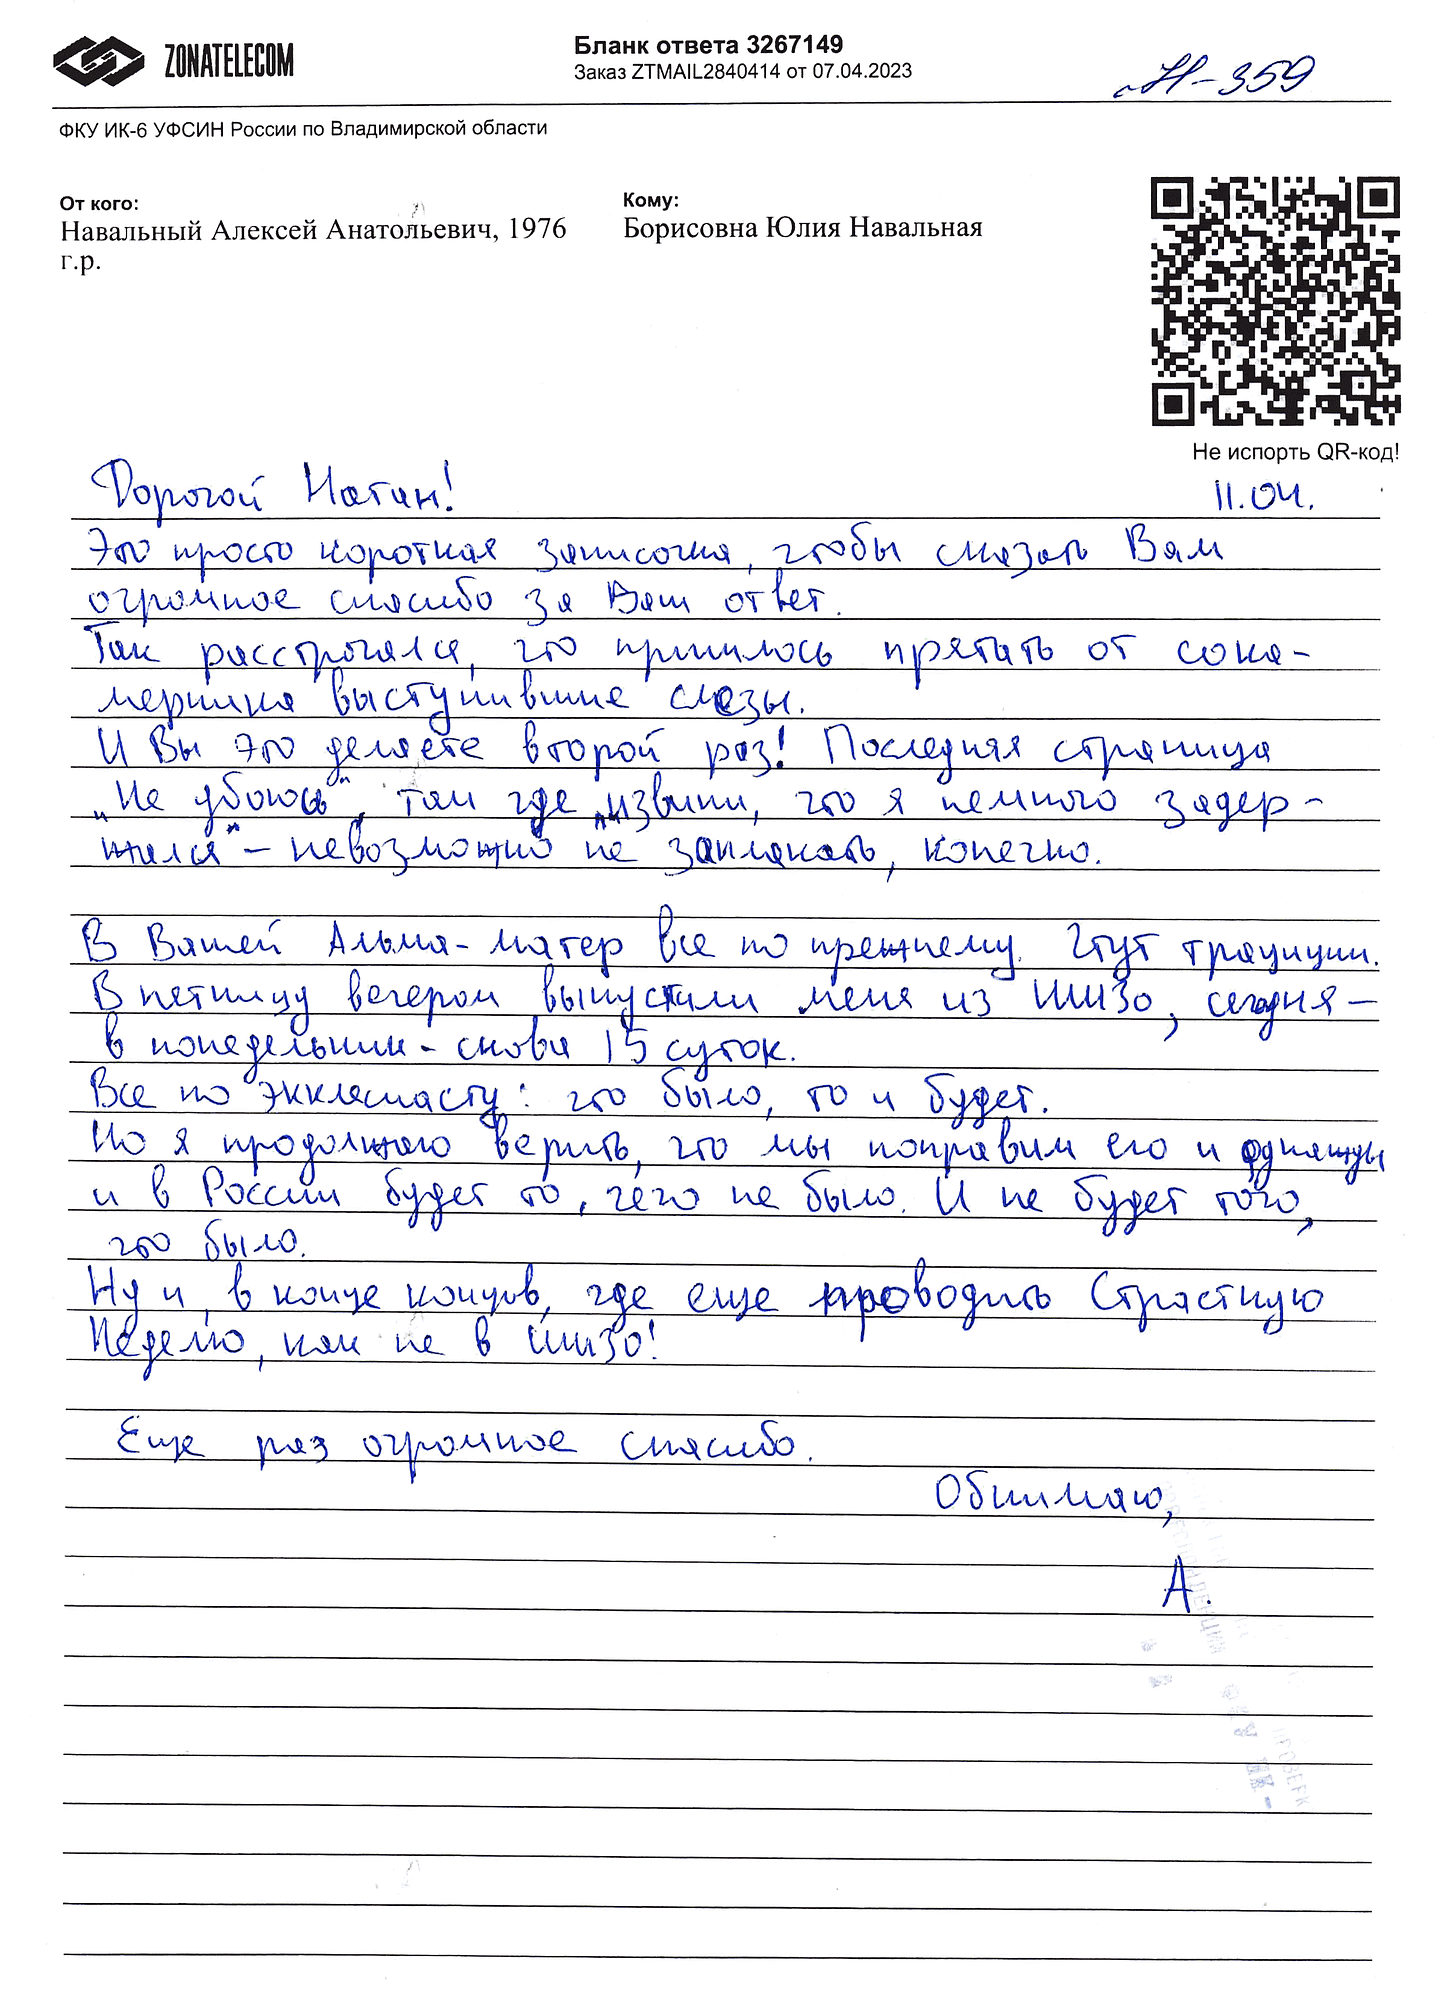 ZONATELECOM
Бланк ответа 3267149
Заказ ZTMAIL2840414 от 07.04.2023
Н-359
ФКУ ИК-6 УФСИН России по Владимирской области
От кого:
Навальный Алексей Анатольевич, 1976
г.р.
Кому:
Борисовна Юлия Навальная
Не испорть QR-код!
Дорогой Натан! 11.04.
Это просто короткая записочка, чтобы сказать Вам
огромное спасибо за Ваш ответ.
Так растрогался, что пришлось прятать от сока-
мерника выступившие слезы.
И Вы это делаете второй раз! Последняя страница
„Не убоюсь", там где „извини, что я немного задер-
жался" – невозможно не заплакать, конечно.
В Вашей Альма-матер все по прежнему. Чтут традиции.
В пятницу вечером выпустили меня из ШИЗО, сегодня –
в понедельник - снова 15 суток.
Все по Экклесиасту: что было, то и будет.
Но я продолжаю верить, что мы поправим его и однажды
и в России будет то, чего не было. И не будет того,
что было.
Ну и, в конце концов, где еще проводить Страстную
Неделю, как не в ШИЗО!
Еще раз огромное спасибо.
Обнимаю,
А.